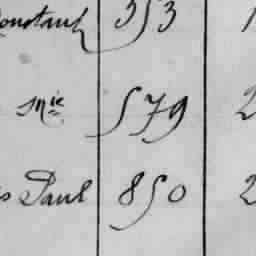 Constant 353 1
Mie 579 2
s Paul 850 2